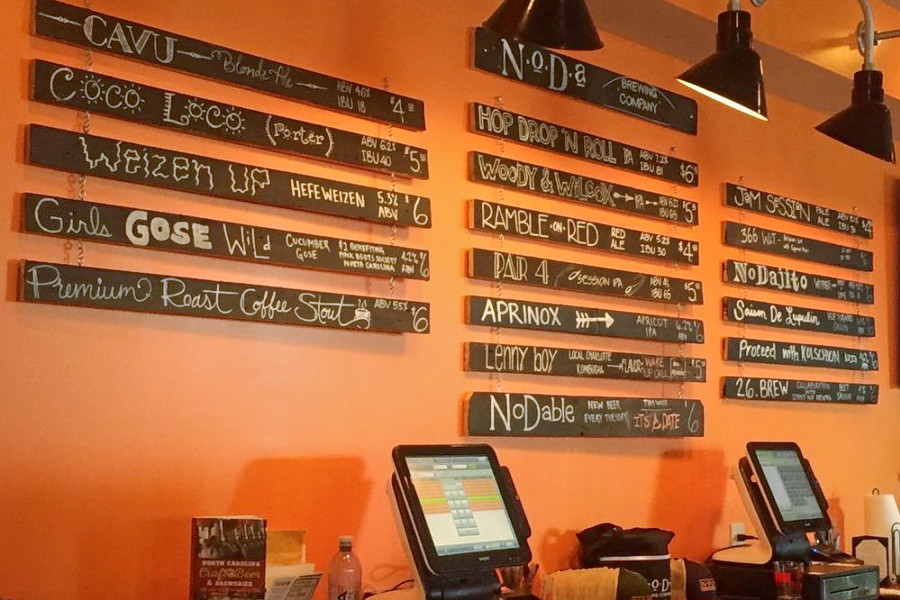 CAVU Blonde Ale ABV 4.6% IBU 18 $4
COCO LOCO (Porter) ABV 6.2% IBU 40 $5
Weizen UP HEFEWEIZEN 5.5% ABV $6
Girls GOSE Wild CUCUMBER GOSE $1 BENEFITING PINK BOOTS SOCIETY NORTH CAROLINA 4.2% ABV $6
Premium Roast Coffee Stout ABV 5.5% $6
NoDa BREWING COMPANY
HOP DROP 'N ROLL IPA ABV 7.2% IBU 81 $6
WOODY & WILCOX IPA IBU 65 $5
RAMBLE-ON-RED RED ALE ABV 5.2% IBU 30 $4
PAR 4 SESSION IPA IBU 65 $5
APRINOX APRICOT IPA 6.2% ABV $6
Lenny boy LOCAL CHARLOTTE KOMBUCHA FLAVOR: WAKE UP CALL $5
NoDable NEW BEER EVERY TUESDAY! THIS WEEK IT'S A DATE $6
JAM SESSION PALE ALE $4
366 WIT
NoDajito
Saison De Lupulin
Proceed with KOLSCHION
26. BREW COLLABORATION BEET SAISON
NORTH CAROLINA
Craft Beer
& BREWERIES